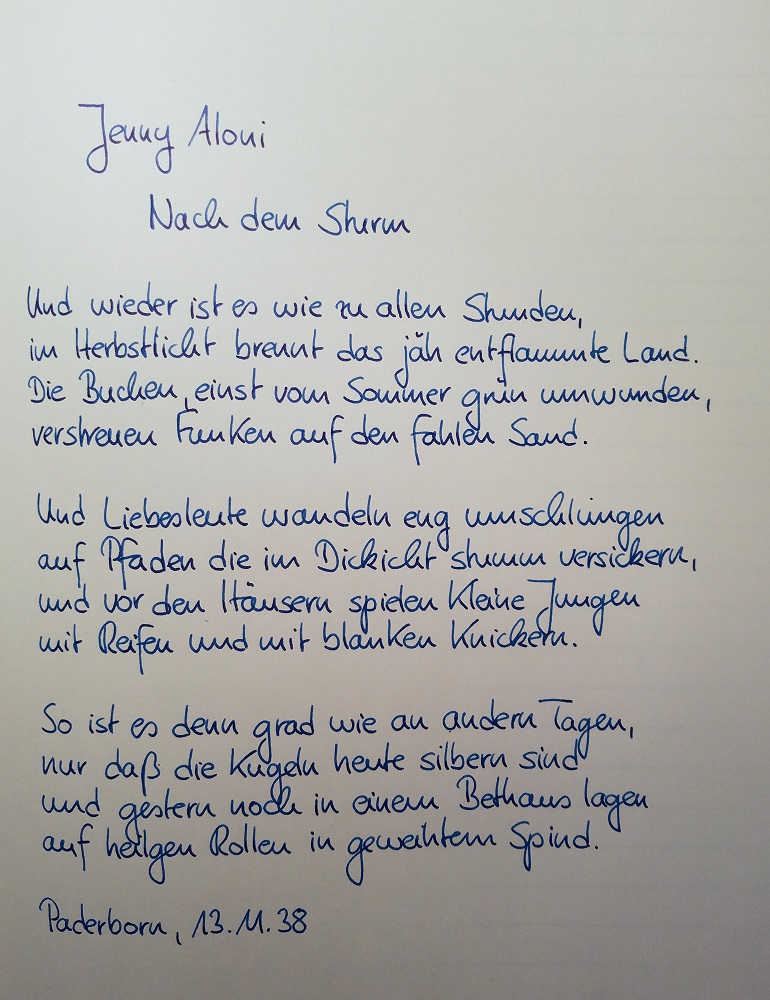 Jenny Aloni
Nach dem Sturm
Und wieder ist es wie zu allen Stunden,
im Herbstlicht brennt das jäh entflammte Land.
Die Buchen, einst vom Sommer grün umwunden,
verstreuen Funken auf den fahlen Sand.
Und Liebesleute wandeln eng umschlungen
auf Pfaden die im Dickicht stumm versickern,
und vor den Häusern spielen kleine Jungen
mit Reifen und mit blanken Knickern.
So ist es denn grad wie an andern Tagen,
nur daß die Kugeln heute silbern sind
und gestern noch in einem Bethaus lagen
auf heilgen Rollen in geweihtem Spind.
Paderborn, 13.11.38